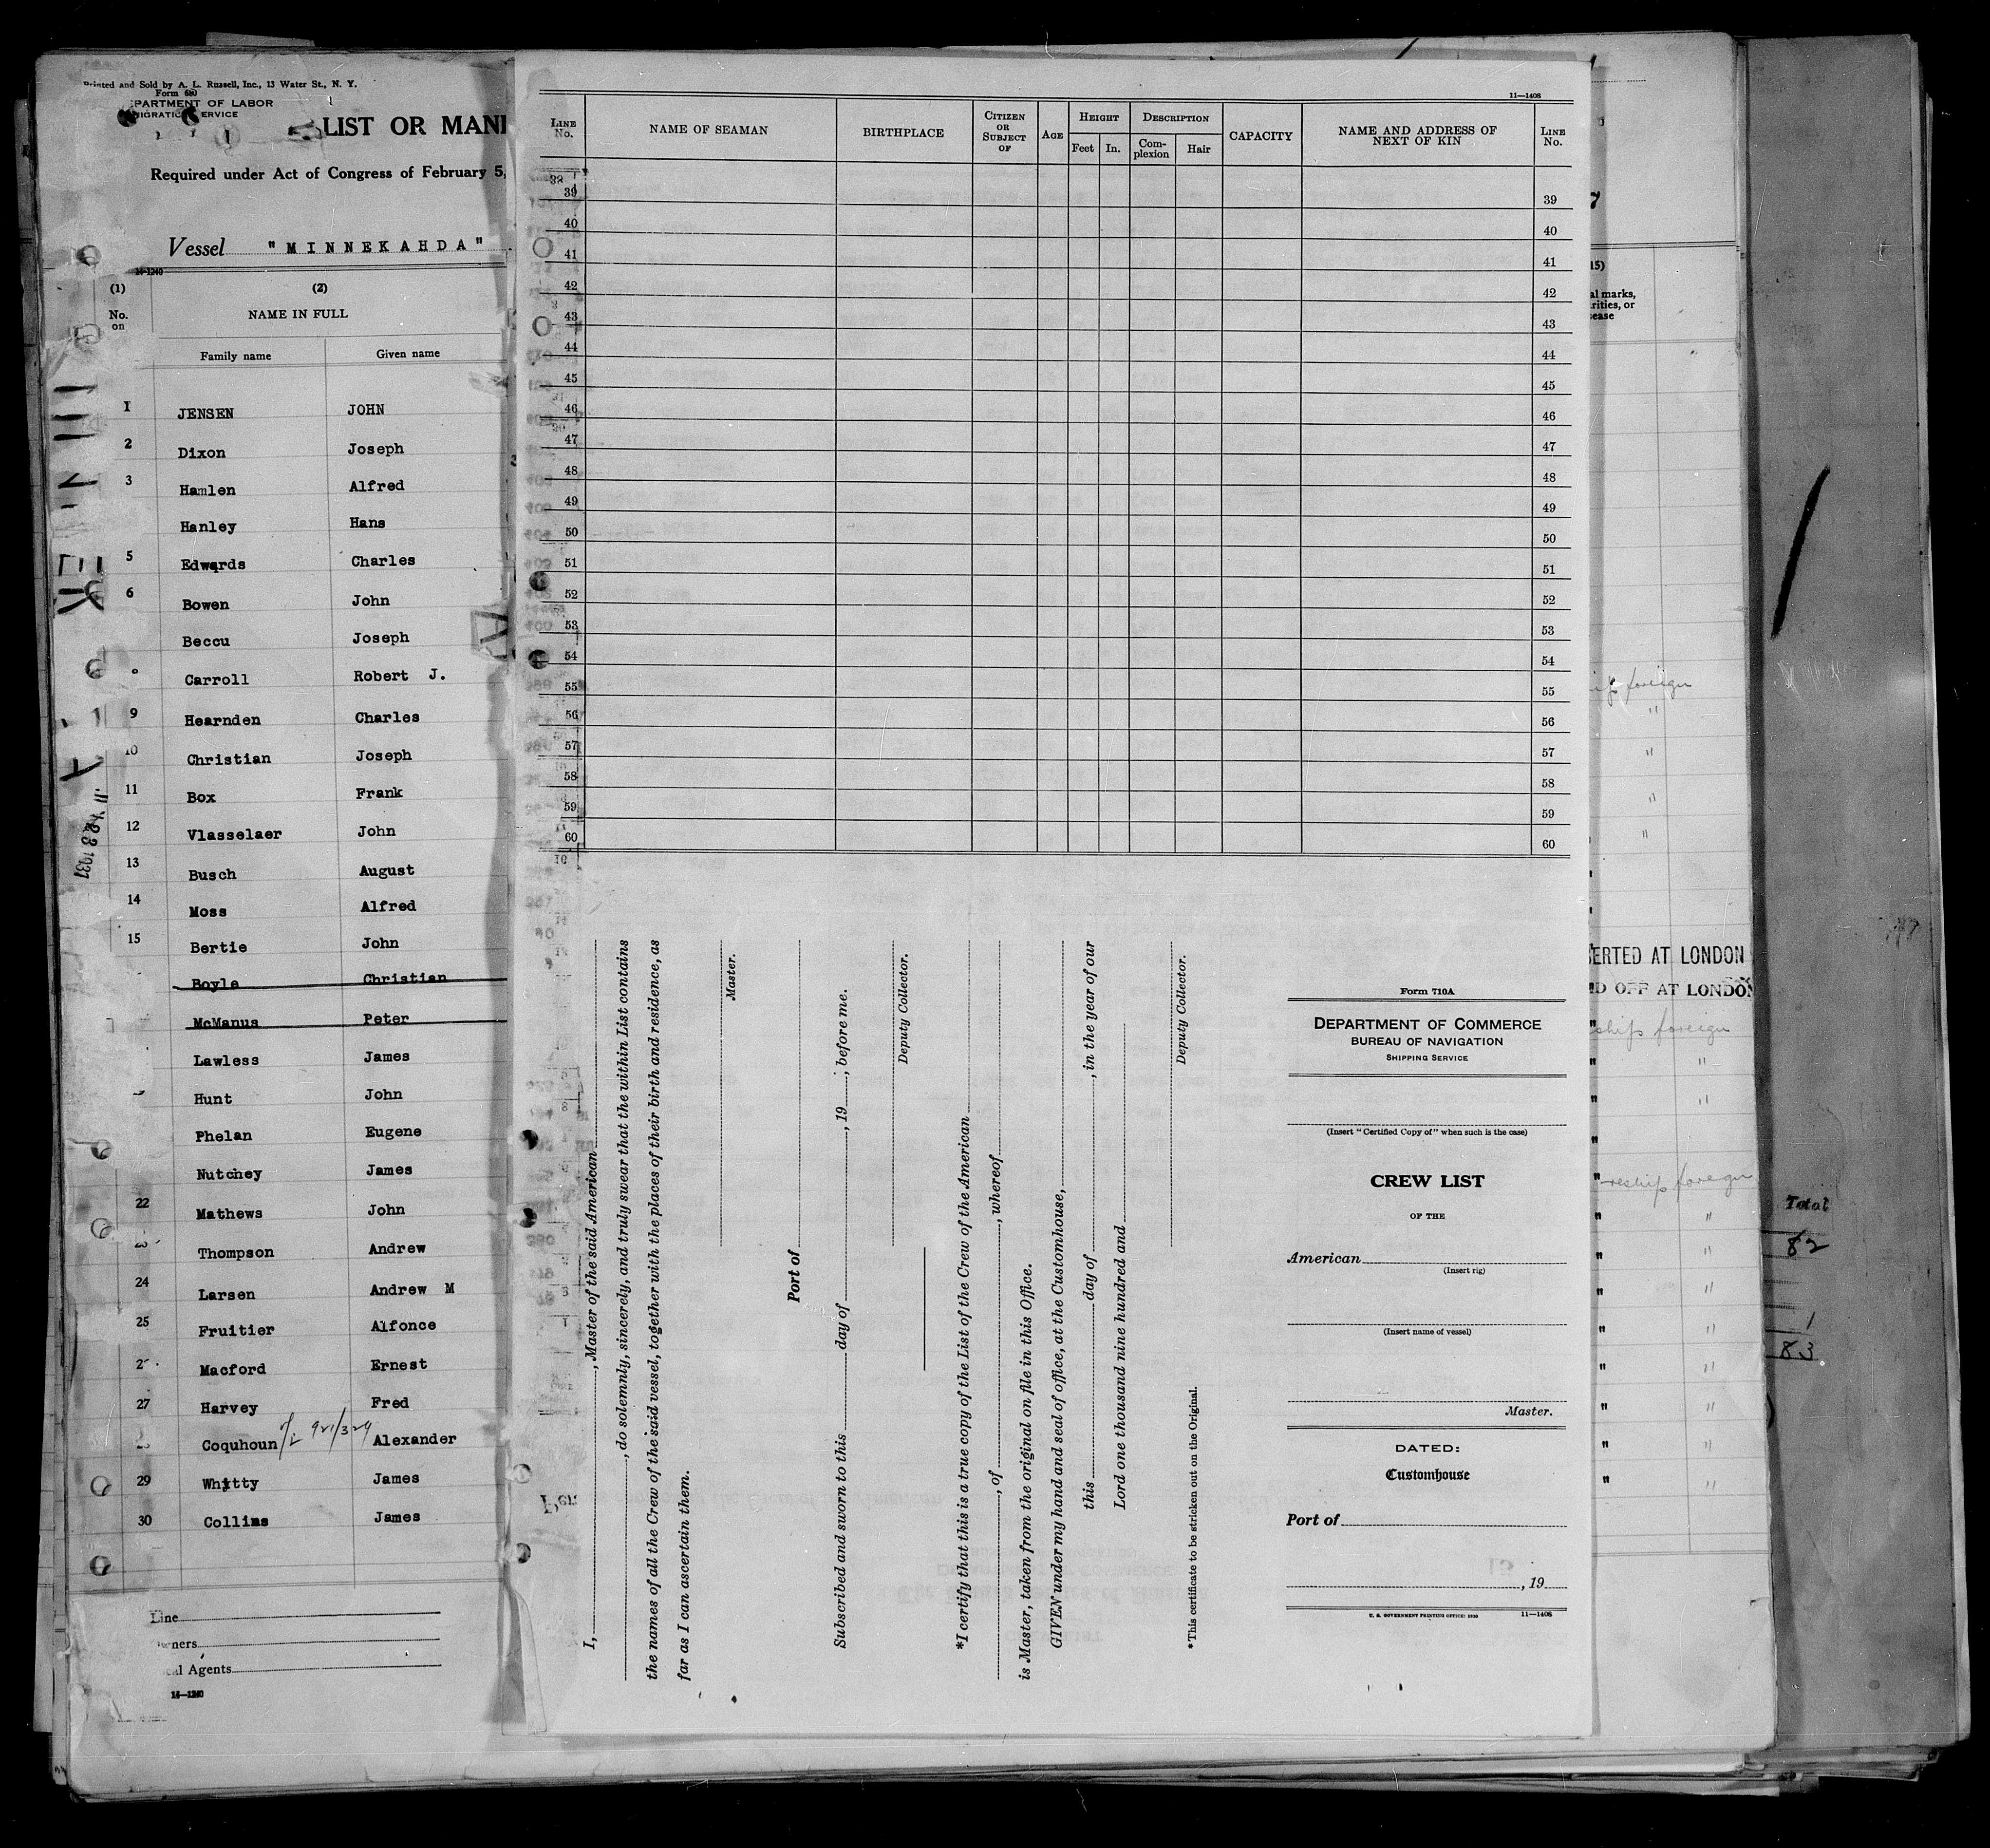 Printed and Sold by A. L. Russell, Inc., 13 Water St., N. Y.
Form 680
PARTMENT OF LABOR
MIGRATION SERVICE
LIST OR MANI
Required under Act of Congress of February 5,
Vessel "MINNEKAHDA"
14-1240
(1) (2)
No. on NAME IN FULL
Family name Given name
1 JENSEN JOHN
2 Dixon Joseph
3 Hamlen Alfred
Hanley Hans
5 Edwards Charles
6 Bowen John
Beccu Joseph
Carroll Robert J.
9 Hearnden Charles
10 Christian Joseph
11 Box Frank
12 Vlasselaer John
13 Busch August
14 Moss Alfred
15 Bertie John
Boyle Christian
McManus Peter
Lawless James
Hunt John
Phelan Eugene
Nutchey James
22 Mathews John
Thompson Andrew
24 Larsen Andrew M
25 Fruitier Alfonce
Macford Ernest
27 Harvey Fred
Coquhoun 921/329 Alexander
29 Whitty James
30 Collins James
Line
wners
cal Agents
14—1240
11—1408
LINE No. NAME OF SEAMAN BIRTHPLACE CITIZEN OR SUBJECT OF AGE HEIGHT DESCRIPTION CAPACITY NAME AND ADDRESS OF NEXT OF KIN LINE No.
Feet In. Complexion Hair
38
39 39
40 40
41 41
42 42
43 43
44 44
45 45
46 46
47 47
48 48
49 49
50 50
51 51
52 52
53 53
54 54
55 55
56 56
57 57
58 58
59 59
60 60
I, , Master of the said American
, do solemnly, sincerely, and truly swear that the within List contains
the names of all the Crew of the said vessel, together with the places of their birth and residence, as
far as I can ascertain them.
Master.
Port of
Subscribed and sworn to this day of , 19 , before me.
Deputy Collector.
*I certify that this is a true copy of the List of the Crew of the American
, of , whereof
is Master, taken from the original on file in this Office.
GIVEN under my hand and seal of office, at the Customhouse,
this day of , in the year of our
Lord one thousand nine hundred and
Deputy Collector.
*This certificate to be stricken out on the Original.
Form 710A
DEPARTMENT OF COMMERCE
BUREAU OF NAVIGATION
SHIPPING SERVICE
(Insert "Certified Copy of" when such is the case)
CREW LIST
OF THE
American
(Insert rig)
(Insert name of vessel)
Master.
DATED:
Customhouse
Port of
, 19
U. S. GOVERNMENT PRINTING OFFICE: 1930 11—1408
7
15)
al marks,
rities, or
ease
foreign
ERTED AT LONDON
D OFF AT LONDON
ship foreign
reship foreign
Total
82
1
83